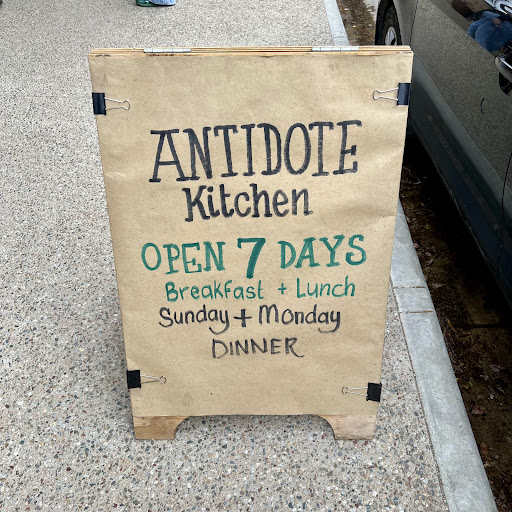 ANTIDOTE
Kitchen
OPEN 7 DAYS
Breakfast + Lunch
Sunday + Monday
DINNER